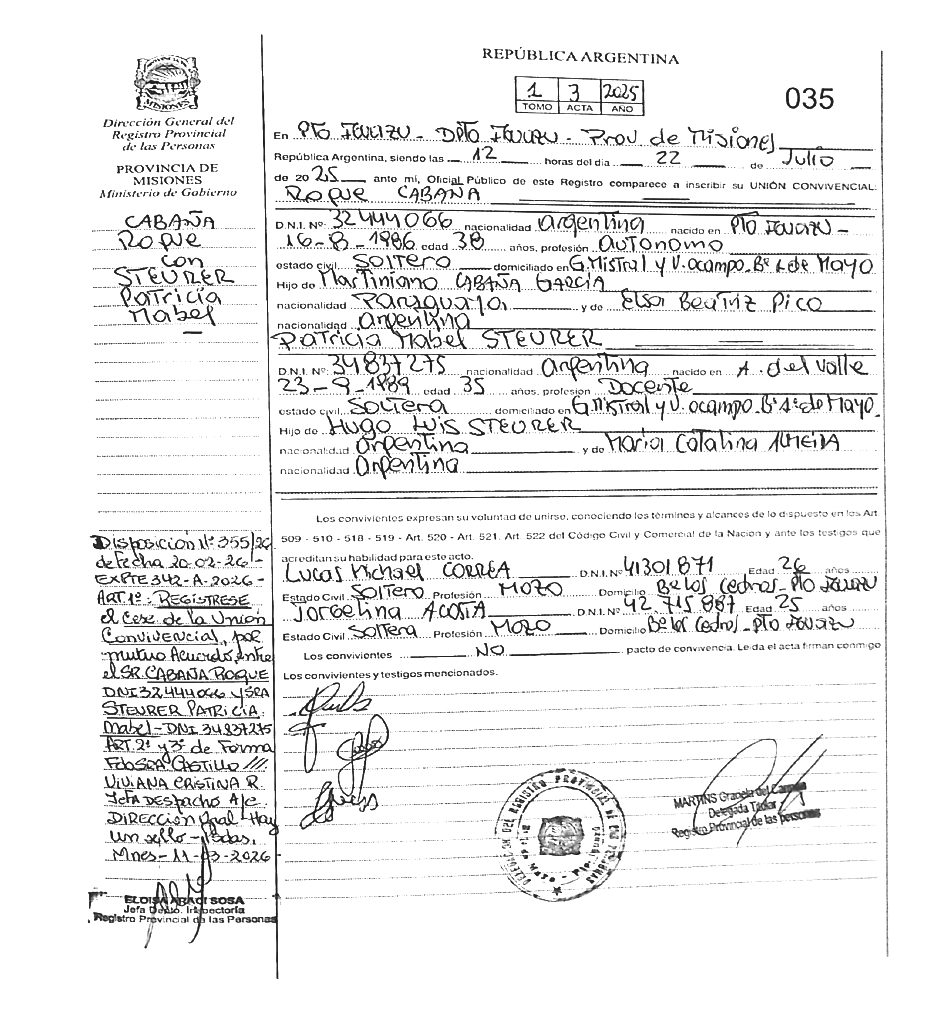 REPÚBLICA ARGENTINA
1 3 2025
TOMO ACTA AÑO
035
PROVINCIA DE MISIONES
Dirección General del
Registro Provincial
de las Personas
PROVINCIA DE
MISIONES
Ministerio de Gobierno
CABAÑA
Roque
con
STEURER
Patricia
Mabel
En PTO IGUAZU - DPTO IGUAZU - Prov. de Misiones
República Argentina, siendo las 12 horas del día 22 de Julio
de 2025 ante mí, Oficial Público de este Registro comparece a inscribir su UNIÓN CONVIVENCIAL:
Roque CABAÑA
D.N.I. Nº 32444066 nacionalidad argentina nacido en PTO IGUAZU -
16-8-1986 edad 38 años, profesión AUTONOMO
estado civil SOLTERO domiciliado en G. Mistral y V. ocampo Bº 1 de Mayo
Hijo de Martiniano CABAÑA GARCÍA
nacionalidad Paraguaya y de Elsa Beatriz Pico
nacionalidad argentina
Patricia Mabel STEURER
D.N.I. Nº: 34837275 nacionalidad argentina nacido en A. del Valle
23-9-1989 edad 35 años, profesión Docente
estado civil Soltera domiciliado en G. Mistral y V. ocampo Bº 1º de Mayo
Hijo de Hugo Luis STEURER
nacionalidad argentina y de Maria Catalina ALMEIDA
nacionalidad argentina
Los convivientes expresan su voluntad de unirse, conociendo los términos y alcances de lo dispuesto en los Art
509 - 510 - 518 - 519 - Art. 520 - Art. 521, Art. 522 del Código Civil y Comercial de la Nación y ante los testigos que
acreditan su habilidad para este acto.
Lucas Michael CORREA D.N.I. Nº 41301871 Edad 26 años
Estado Civil Soltero Profesión MOZO Domicilio Bº Los Cedros - PTO IGUAZU
Jorgelina ACOSTA D.N.I. Nº 42.715887 Edad 25 años
Estado Civil Soltera Profesión MOZO Domicilio Bº Los Cedros - PTO IGUAZU
Los convivientes NO pacto de convivencia. Leída el acta firman conmigo
Los convivientes y testigos mencionados.
Disposición Nº 355/26
de Fecha 20-02-26-
EXPTE 342-A-2026-
ART. 1º: REGISTRESE
el Cese de la Unión
Convivencial, por
mutuo Acuerdo, entre
el SR. CABAÑA ROQUE
DNI 32444066 y SRA
STEURER PATRICIA
Mabel - DNI 34837275
ART. 2º y 3º de Forma
Fdo SRA CASTILLO ///
VIVIANA CRISTINA R.
Jefa Despacho A/c
DIRECCIÓN Gral - Hay
un sello - Pdas,
Mnes - 11-03-2026-
ELOISA ARACI SOSA
Jefa Depto. Inspectoría
Registro Provincial de las Personas
DELEGACION DEL REGISTRO PROVINCIAL DE LAS PERSONAS
MARTINS Graciela del Carmen
Delegada Titular
Registro Provincial de las personas